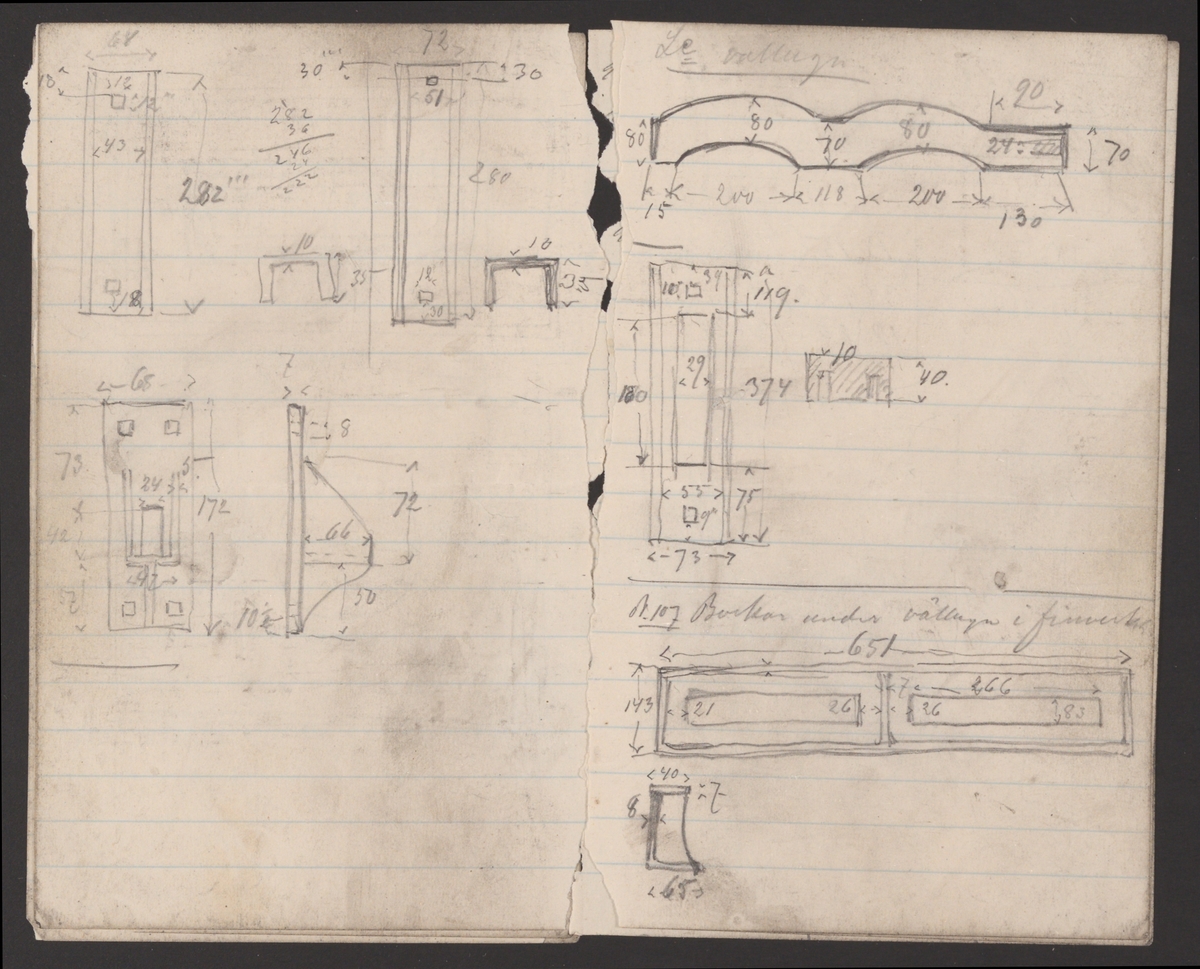 68
18
12
12
43
282'''
18
282
36
246
24
222
72
30'''
30
51
280
12
30
10
10
35
65
73
24
5
172
42
42
57
7
8
72
66
50
10½
Le vällugn
90
80
80
70
80
24
70
15
200
118
200
130
10
39
119.
29
180
374
55
75
9"
73
10
40.
N. 107 Bockar under vällugn i finverk
651
143
21
26
7
266
26
83
40
7
8
65